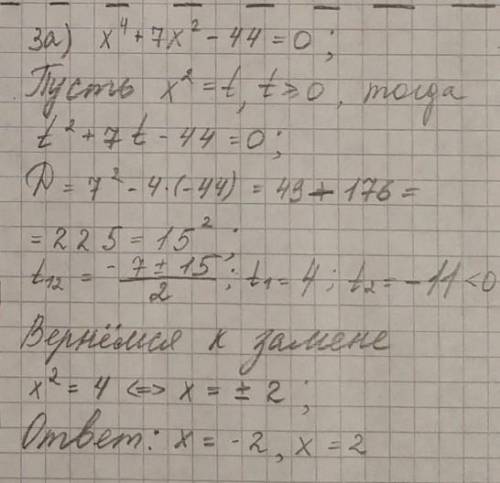 3а) x⁴ + 7x² - 44 = 0;
Пусть x² = t, t ≥ 0, тогда
t² + 7t - 44 = 0;
D = 7² - 4·(-44) = 49 + 176 =
= 225 = 15²;
t₁₂ = (-7 ± 15)/2; t₁ = 4; t₂ = -11 < 0
Вернёмся к замене
x² = 4 <=> x = ± 2;
Ответ: x = -2, x = 2